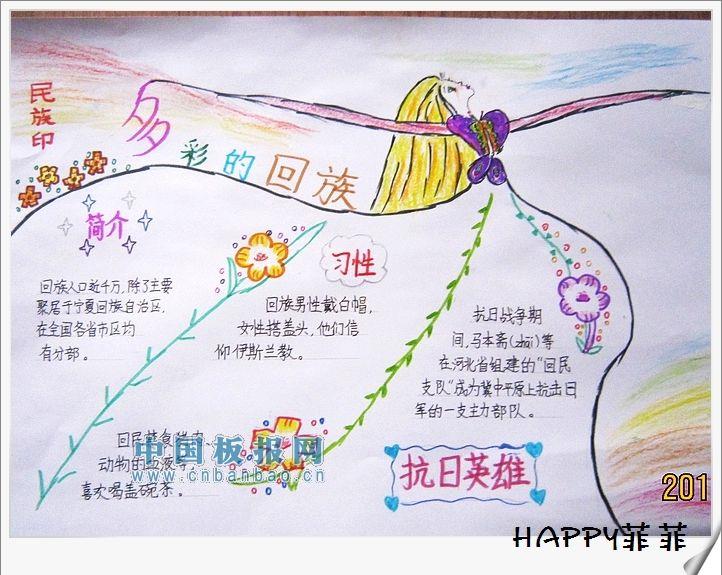 民族印
多彩的回族
简介
回族人口近千万,除了主要
聚居于宁夏回族自治区,
在全国各省市区均
有分部。
习性
回族男性戴白帽,
女性搭盖头,他们信
仰伊斯兰教。
抗日战争期
间,马本斋(zhāi)等
在河北省组建的"回民
支队"成为冀中平原上抗击日
军的一支主力部队。
回民禁食
动物的血液等,
喜欢喝盖碗茶。
抗日英雄
中国板报网
www.cnbanbao.cn
201
HAPPY菲菲